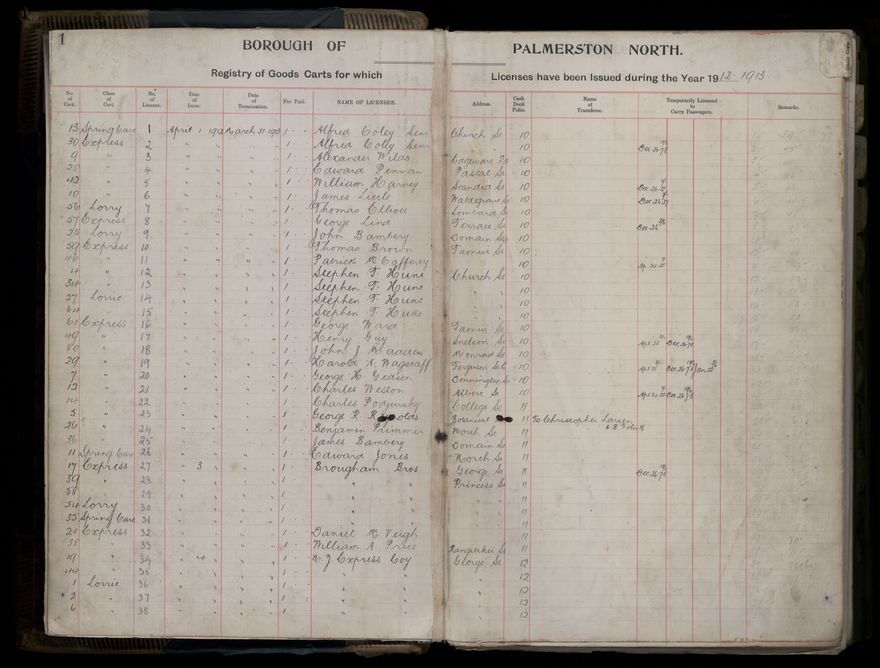 1
BOROUGH OF PALMERSTON NORTH.
Registry of Goods Carts for which Licenses have been Issued during the Year 1912-1913
No. of Cart. Class of Cart. No. of License. Date of Issue. Date of Termination. Fee Paid. NAME OF LICENSEE. Address. Cash Book Folio. Name of Transferee. Temporarily Licensed to Carry Passengers. Remarks.
13 Spring Cart 1 April 1 1912 March 31 1913 1 - - Alfred Coley Sen Church St 10
30 Express 2 " " " " 1 - Alfred Coley Sen " 10 Dec 26
9 " 3 " " " " 1 - Alexander Wilds 10
20 " 4 " " " " 1 - Edward Penman Pascal St 10
42 " 5 " " " " 1 - William Harvey Scandia St 10 Dec 26
10 " 6 " " " " 1 - James Little Waldegrave St 10 Dec 26
56 Lorry 7 " " " " 1 - Thomas Elliott Lombard St 10
57 Express 8 " " " " 1 - George Lind Terrace St 10 Dec 26
25 Lorry 9 " " " " 1 - John Bambery Domain St 10
59 Express 10 " " " " 1 - Thomas Brown Taonui St 10
46 " 11 " " " " 1 - Patrick McCafferey " 10
4 " 12 " " " " 1 - Stephen F. Hunt Church St 10
34 " 13 " " " " 1 - Stephen F. Hunt " 10
27 Lorrie 14 " " " " 1 - Stephen F. Hunt " 10
64 " 15 " " " " 1 - Stephen F. Hunt " 10
61 Express 16 " " " " 1 - George Ward Taonui St 10
49 " 17 " " " " 1 - Henry Guy Snelson St 10 Apl 25 Dec 26
50 " 18 " " " " 1 - John J McFadden Monrad St 10
29 " 19 " " " " 1 - Harold A Wagstaff Ferguson St 10 Apl 25 Dec 26 Jan 22
7 " 20 " " " " 1 - George H Gedson Bennington St 10
12 " 21 " " " " 1 - Charles Weston Albert St 10 Apl 25 Dec 26
14 " 22 " " " " 1 - Charles Podjursky College St 11
5 " 23 " " " " 1 - George R Reynolds Botanical 11 To Christopher Larsen
26 " 24 " " " " 1 - Benjamin Primmer North St 11
36 " 25 " " " " 1 - James Bambery Domain St 11
11 Spring Cart 26 " " " " 1 - Edward Jones North St 11
17 Express 27 " 3 " " 1 - Brougham Bros George St 11 Dec 26
39 " 28 " " " " 1 - " " Princess St 11
58 " 29 " " " " 1 - " " " 11
54 Lorry 30 " " " " 1 - " " " 11
35 Spring Cart 31 " " " " 1 - " " " 11
21 Express 32 " " " " 1 - Daniel McVeigh " 11
38 " 33 " " " " 1 - William A Price Rangitikei St 11
19 " 34 " 4 " " 1 - N.Z Express Coy George St 12
44 " 35 " " " " 1 - " " " 12
1 Lorrie 36 " " " " 1 - " " " 12
2 " 37 " " " " 1 - " " " 12
6 " 38 " " " " 1 - " " " 12